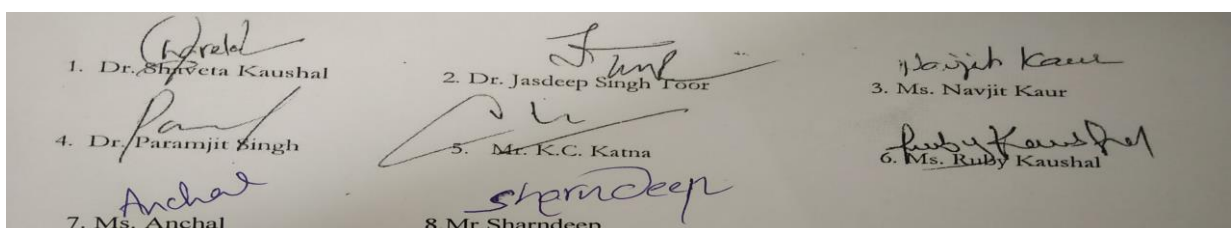 1. Dr. Shaveta Kaushal 2. Dr. Jasdeep Singh Toor
Navjit Kaur
3. Ms. Navjit Kaur
4. Dr. Paramjit Singh 5. Mr. K.C. Katna
Ruby Kaushal
6. Ms. Ruby Kaushal
Anchal Sharndeep
7. Ms. Anchal 8 Mr Sharndeep